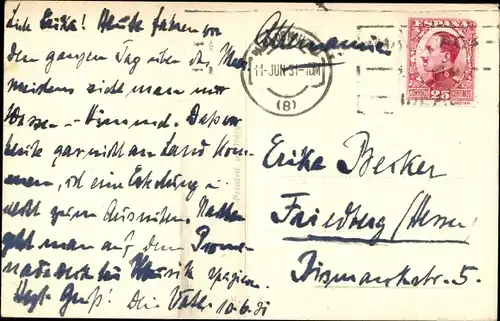 Lieb Erika! Heute fahren wir
den ganzen Tag über das Meer.
Meistens sieht man nur
Wasser - Himmel. Dass wir
heute gar nicht an Land kom-
men, ist eine Erholung u.
recht zum Ausruhen.
geht man auf dem Prome-
nadendeck bei Musik spazieren.
Herzl. Gruß! Dein Vater 10.6.31
Allemania
11-JUN 31-10M
(8)
ESPAÑA
CORREOS 25 CENTIMOS
Printed
Erika Becker
Friedberg (Hessen)
Bismarckstr. 5.